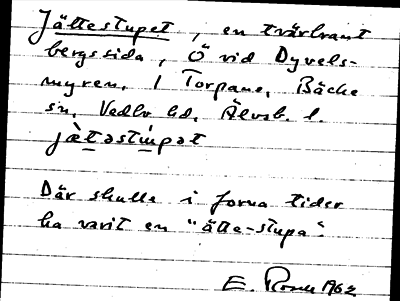 Jättestupet, en tvärbrant
bergssida, Ö vid Dyvels-
myren, 1 Torpane, Bäcke
sn, Vedbo hd, Älvsb. l.
jæ̀təstu̇pət
Där skulle i forna tider
ha varit en "ätte-stupa".
E. 1962